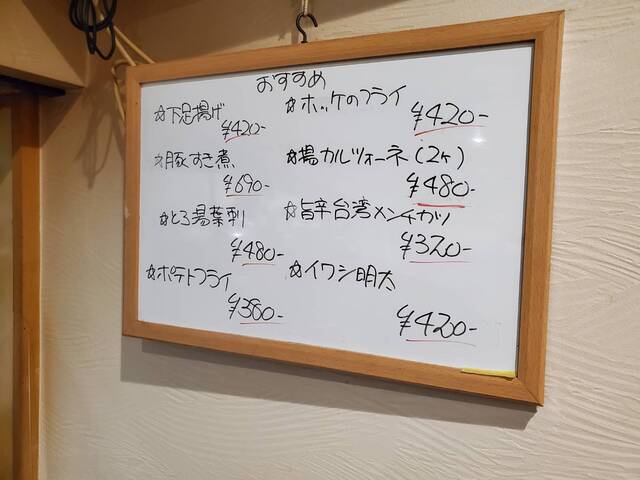 おすすめ
☆下足揚げ
¥420-
☆豚すき煮
¥690-
☆とろ湯葉刺
¥480-
☆ポテトフライ
¥380-
☆ホッケのフライ
¥420-
☆揚カルツォーネ(2ヶ)
¥480-
☆旨辛台湾メンチカツ
¥320-
☆イワシ明太
¥420-